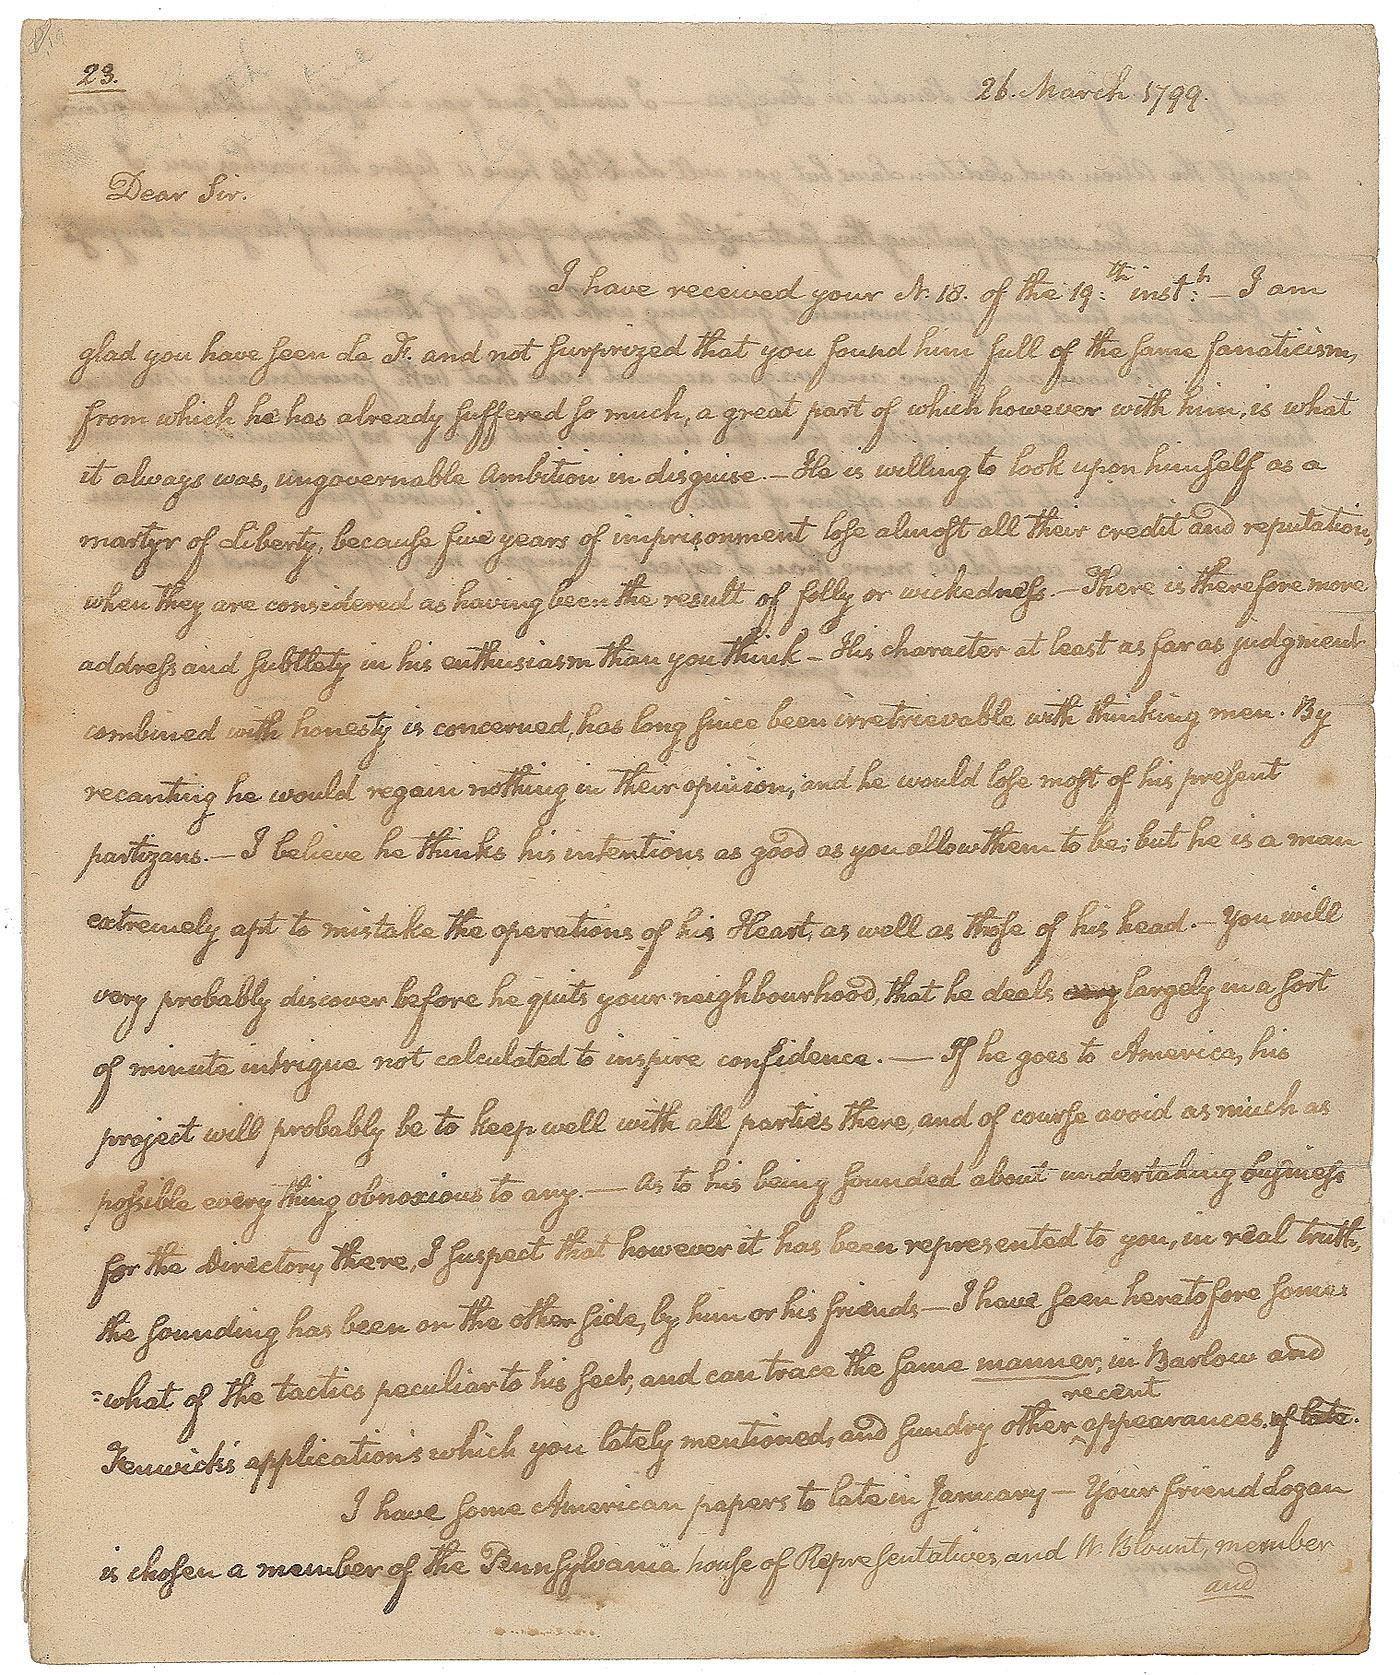 23.
26. March 1799.
Dear Sir.
I have received your N. 18. of the 19:th inst:t — I am
glad you have seen La F. and not surprized that you found him full of the same fanaticism,
from which he has already suffered so much, a great part of which however with him, is what
it always was, ungovernable ambition in disguise. — He is willing to look upon himself as a
martyr of Liberty, because five years of imprisonment lose almost all their credit and reputation,
when they are considered as having been the result of folly or wickedness. — There is therefore more
address and subtlety in his enthusiasm than you think — His character at least as far as judgment
combined with honesty is concerned, has long since been irretrievable with thinking men. By
recanting he would regain nothing in their opinion, and he would lose most of his present
partizans. — I believe he thinks his intentions as good as you allow them to be; but he is a man
extremely apt to mistake the operations of his Heart, as well as those of his head. — You will
very probably discover before he quits your neighbourhood, that he deals very largely in a sort
of minute intrigue not calculated to inspire confidence. — If he goes to America, his
project will probably be to keep well with all parties there, and of course avoid as much as
possible every thing obnoxious to any. — As to his being sounded about undertaking business
for the Directory there, I suspect that however it has been represented to you, in real truth,
the sounding has been on the other side, by him or his friends — I have seen heretofore some=
=what of the tactics peculiar to his sect, and can trace the same manner, in Barlow and
recent
Fenwick's applications which you lately mentioned, and sundry other appearances of late.
I have some American papers to late in January — Your friend Logan
is chosen a member of the Pennsylvania house of Representatives, and W. Blount, member
and